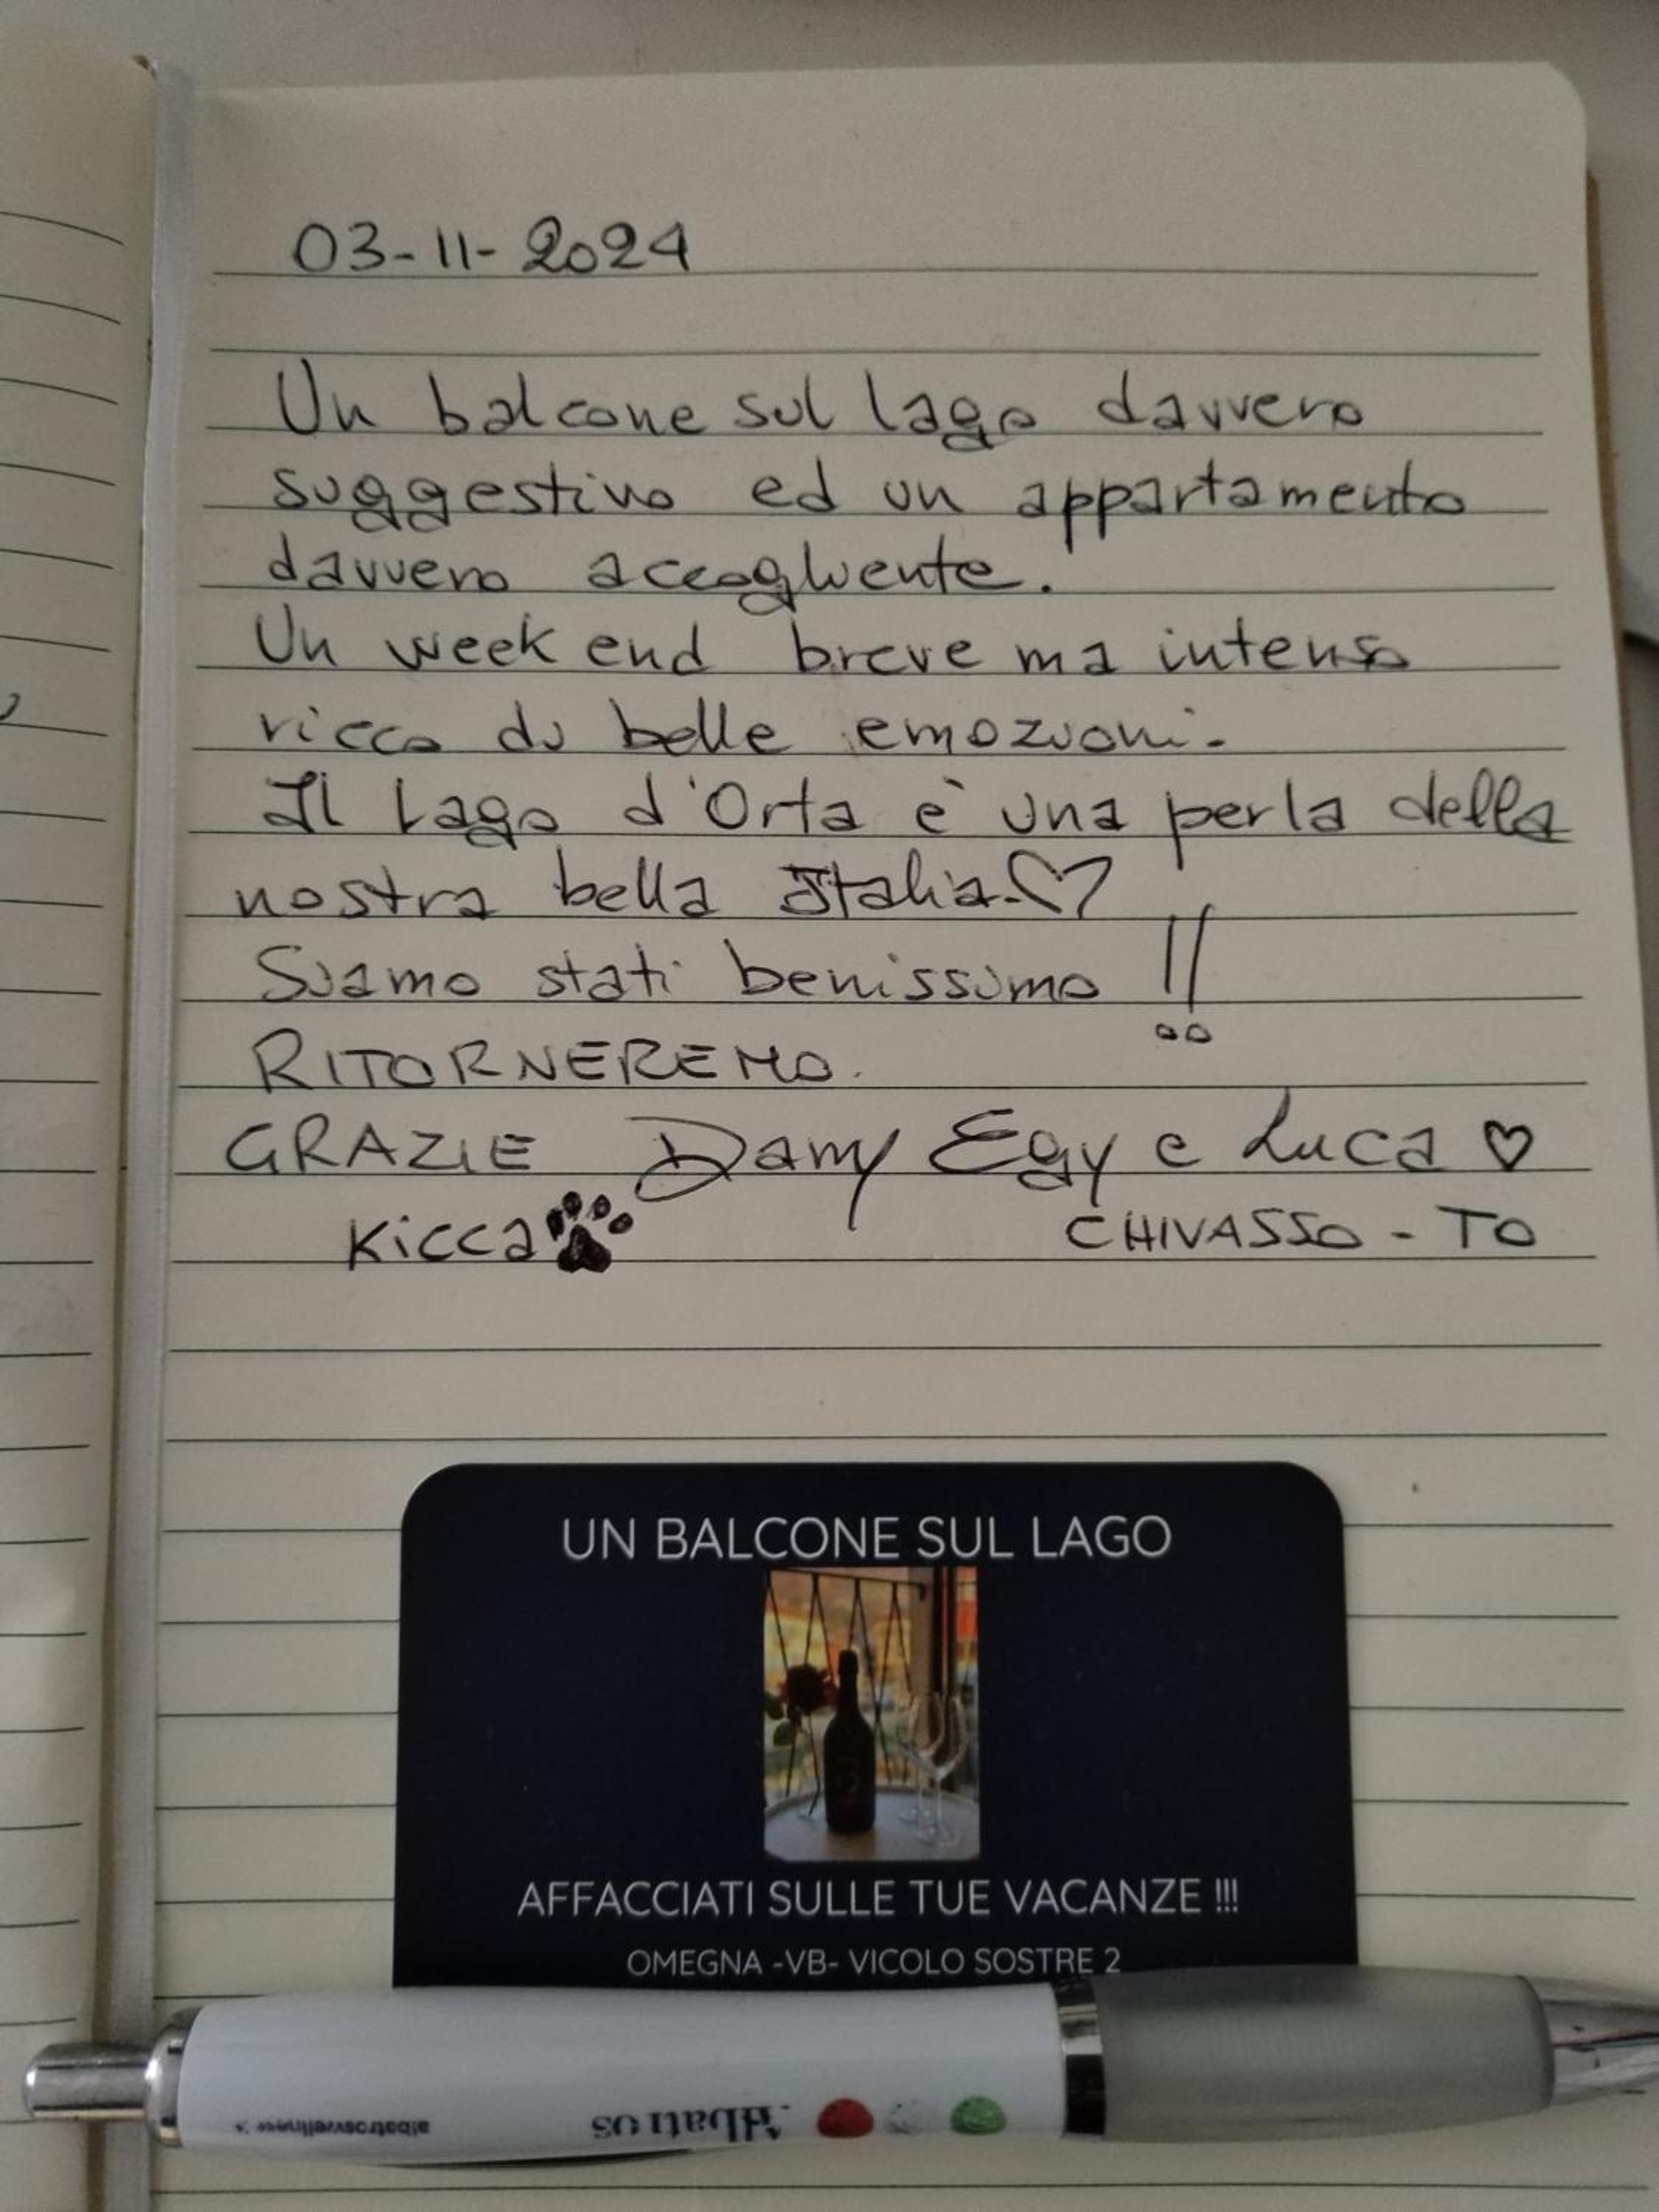 03-11-2024
Un balcone sul lago davvero
suggestivo ed un appartamento
davvero accogliente.
Un week end breve ma intenso
ricco di belle emozioni.
Il Lago d'Orta è una perla della
nostra bella Italia.♡
Siamo stati benissimo !!
RITORNEREMO.
GRAZIE Dany Egy e Luca ♡
Kicca CHIVASSO - TO
UN BALCONE SUL LAGO
AFFACCIATI SULLE TUE VACANZE !!!
OMEGNA -VB- VICOLO SOSTRE 2
Albatros